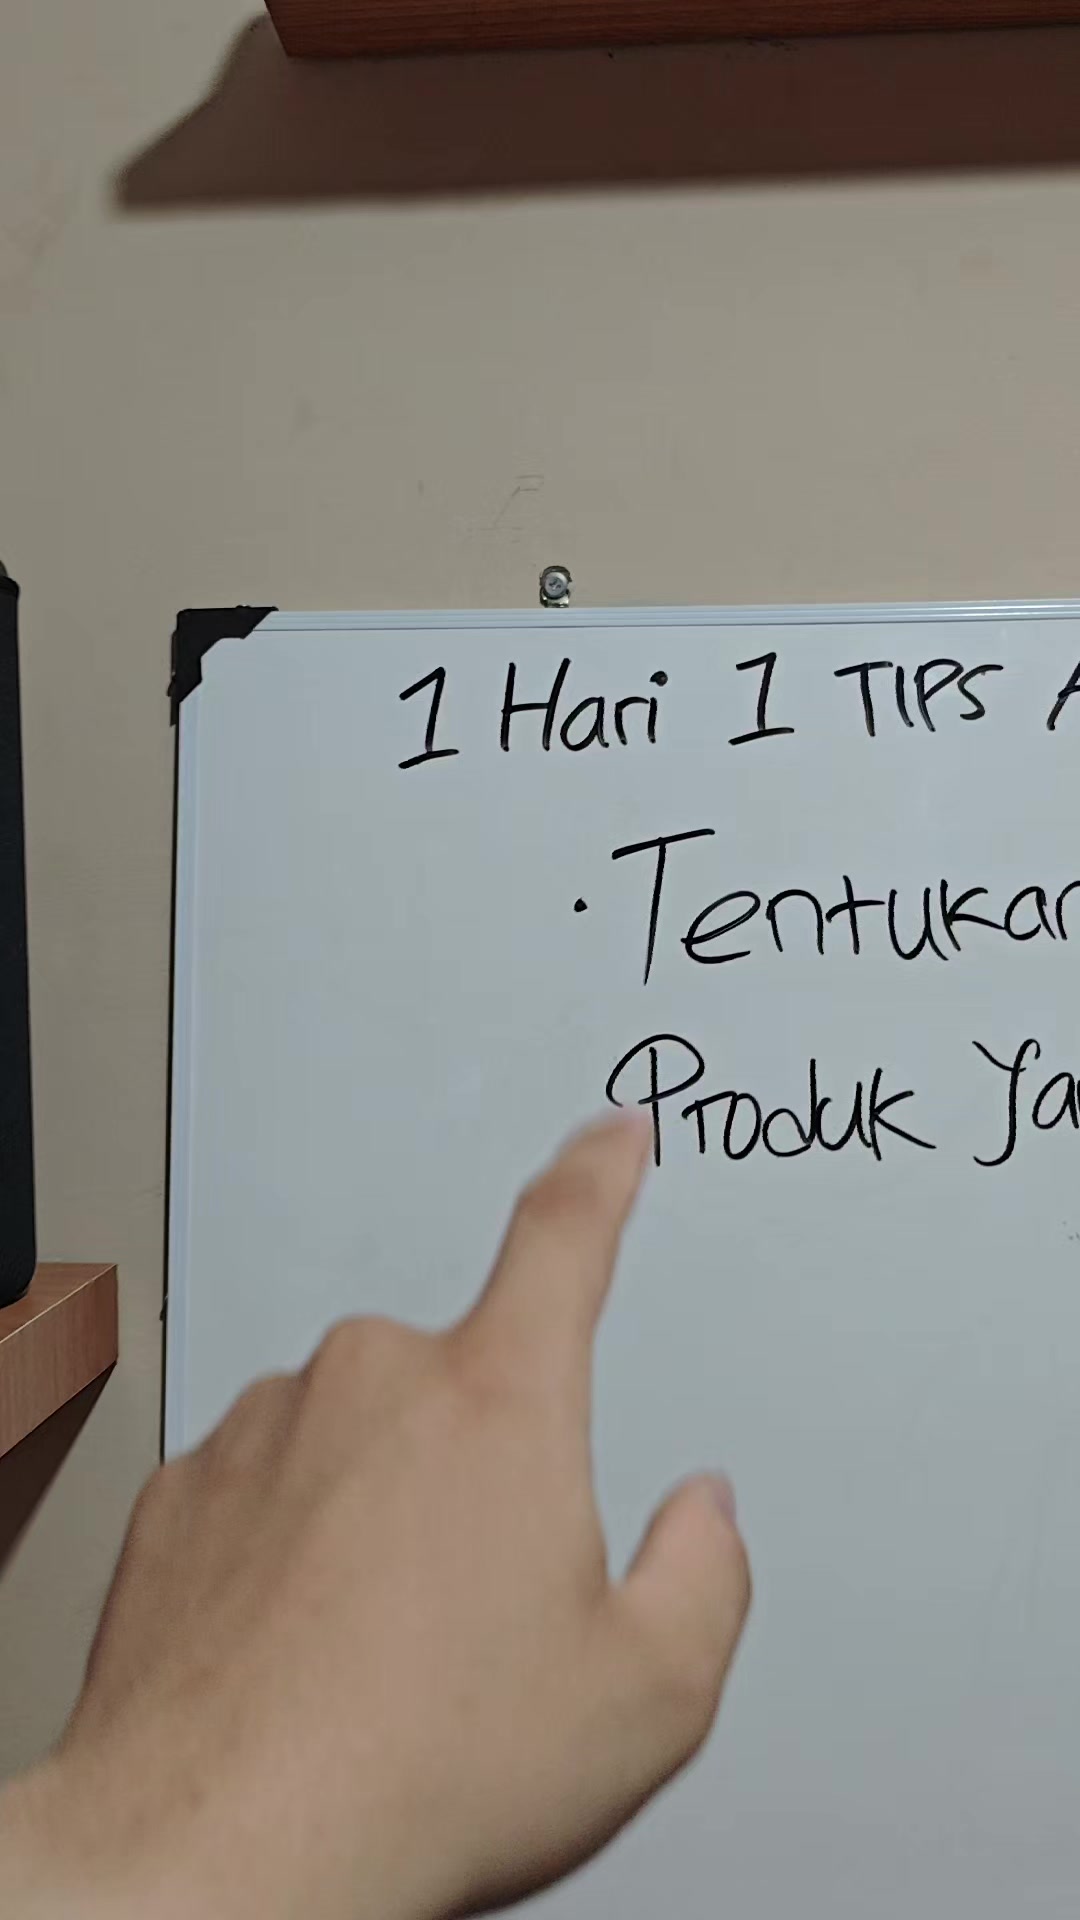 1 Hari 1 TIPS A
• Tentukan
Produk Ya